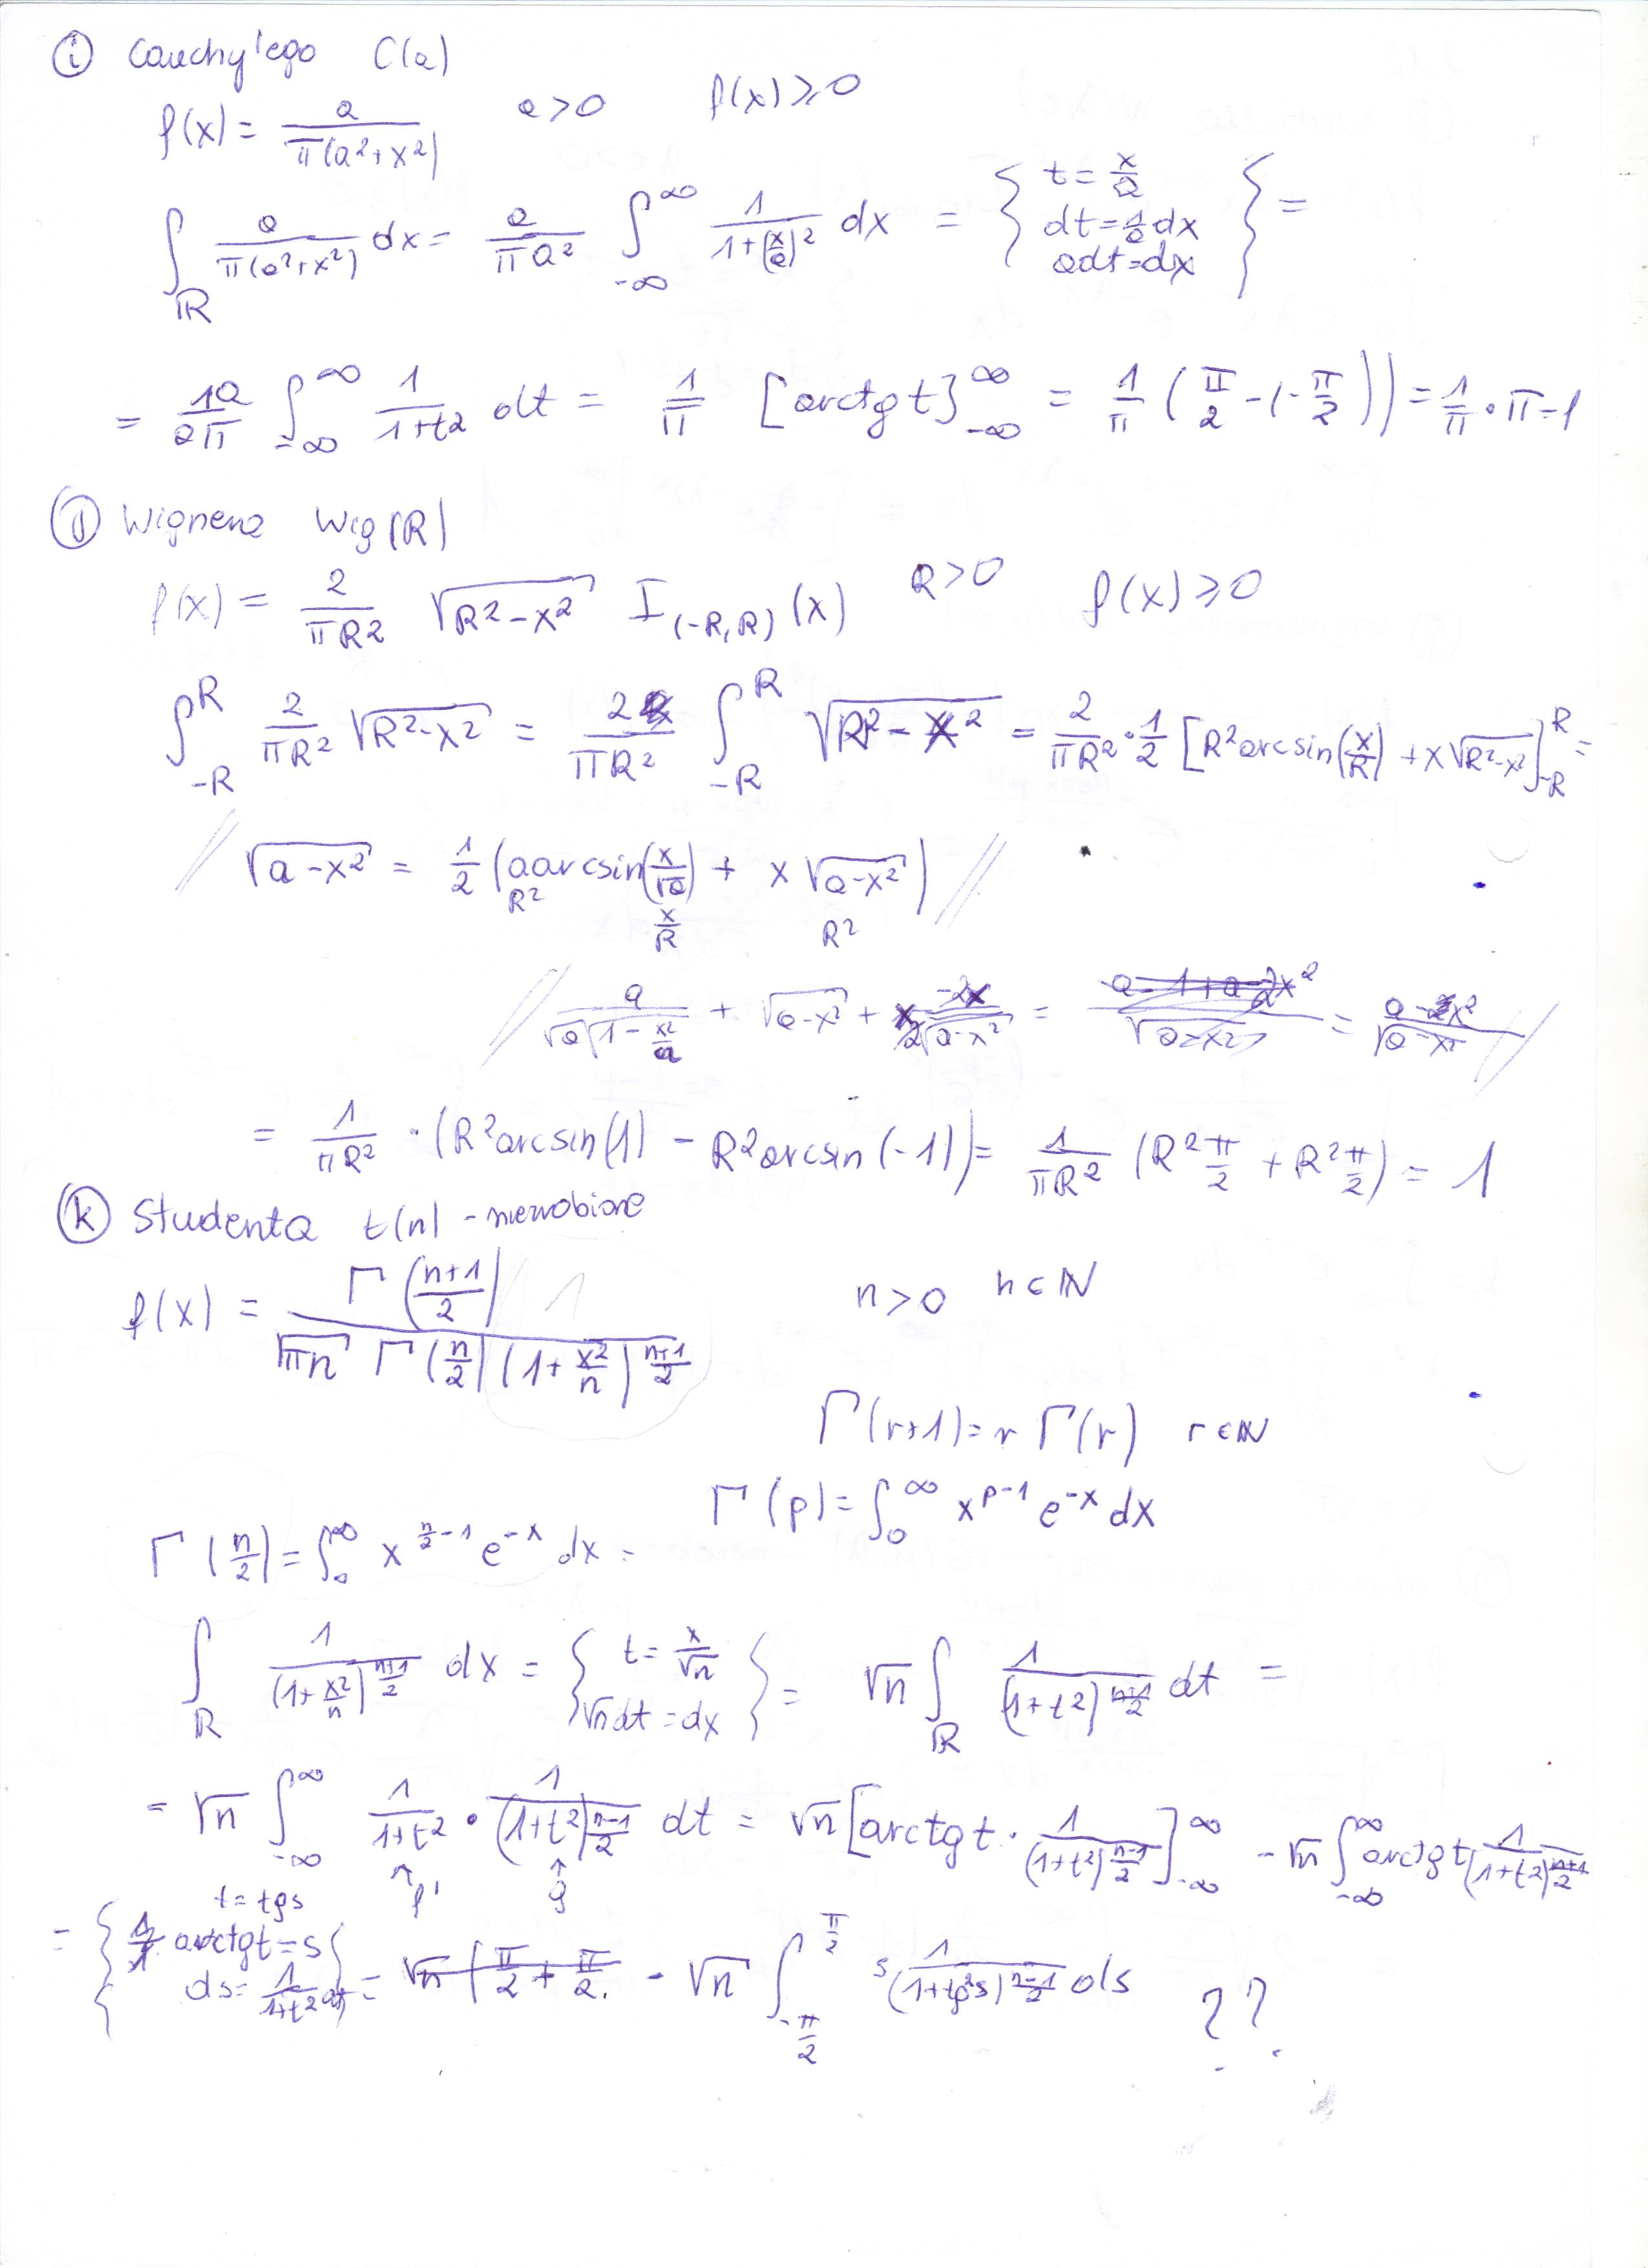 (i) Cauchy'ego C(a)
f(x) = \frac{a}{π(a²+x²)} a>0 f(x)⩾0
∫_ℝ \frac{a}{π(a²+x²)} dx = \frac{a}{πa²} ∫_{-∞}^{∞} \frac{1}{1+(\frac{x}{a})²} dx = { t=\frac{x}{a} dt=\frac{1}{a}dx adt=dx } =
= \frac{1a}{aπ} ∫_{-∞}^{∞} \frac{1}{1+t²} dt = \frac{1}{π} [arctg t]_{-∞}^{∞} = \frac{1}{π} (\frac{π}{2}-(-\frac{π}{2})) = \frac{1}{π}·π=1
(j) Wignera Wig(R)
f(x) = \frac{2}{πR²} √(R²-x²) I_{(-R,R)}(x) R>0 f(x)⩾0
∫_{-R}^{R} \frac{2}{πR²} √(R²-x²) = \frac{2}{πR²} ∫_{-R}^{R} √(R²-x²) = \frac{2}{πR²}·\frac{1}{2} [R²arcsin(\frac{x}{R}) + x√(R²-x²)]_{-R}^{R} =
// √(a-x²) = \frac{1}{2} (a arcsin(\frac{x}{√a}) + x √(a-x²)) //
R² \frac{x}{R} R²
// \frac{a}{√a√(1-\frac{x²}{a})} + √(a-x²) + x\frac{-2x}{2√(a-x²)} = = \frac{a-2x²}{√(a-x²)} //
= \frac{1}{πR²} · (R²arcsin(1) - R²arcsin(-1)) = \frac{1}{πR²} (R²\frac{π}{2} + R²\frac{π}{2}) = 1
(k) Studenta t(n) - nierobione
f(x) = \frac{Γ(\frac{n+1}{2})}{√(πn) Γ(\frac{n}{2}) (1+\frac{x²}{n})^{\frac{n+1}{2}}} n>0 n∈ℕ
Γ(r+1)=rΓ(r) r∈ℕ
Γ(p)=∫_0^∞ x^{p-1} e^{-x} dx
Γ(\frac{n}{2})=∫_0^∞ x^{\frac{n}{2}-1} e^{-x} dx =
∫_ℝ \frac{1}{(1+\frac{x²}{n})^{\frac{n+1}{2}}} dx = { t=\frac{x}{√n} √n dt=dx } = √n ∫_ℝ \frac{1}{(1+t²)^{\frac{n+1}{2}}} dt =
= √n ∫_{-∞}^{∞} \frac{1}{1+t²} · \frac{1}{(1+t²)^{\frac{n-1}{2}}} dt = √n [arctg t · \frac{1}{(1+t²)^{\frac{n-1}{2}}}]_{-∞}^{∞} - √n ∫_{-∞}^{∞} arctg t \frac{1}{(1+t²)^{\frac{n+1}{2}}}
↑ f' ↑ g
= { t=tg s arctg t=s ds=\frac{1}{1+t²}dt } = √n (\frac{π}{2}+\frac{π}{2} - √n ∫_{-\frac{π}{2}}^{\frac{π}{2}} s \frac{1}{(1+tg²s)^{\frac{n-1}{2}}} ds ??